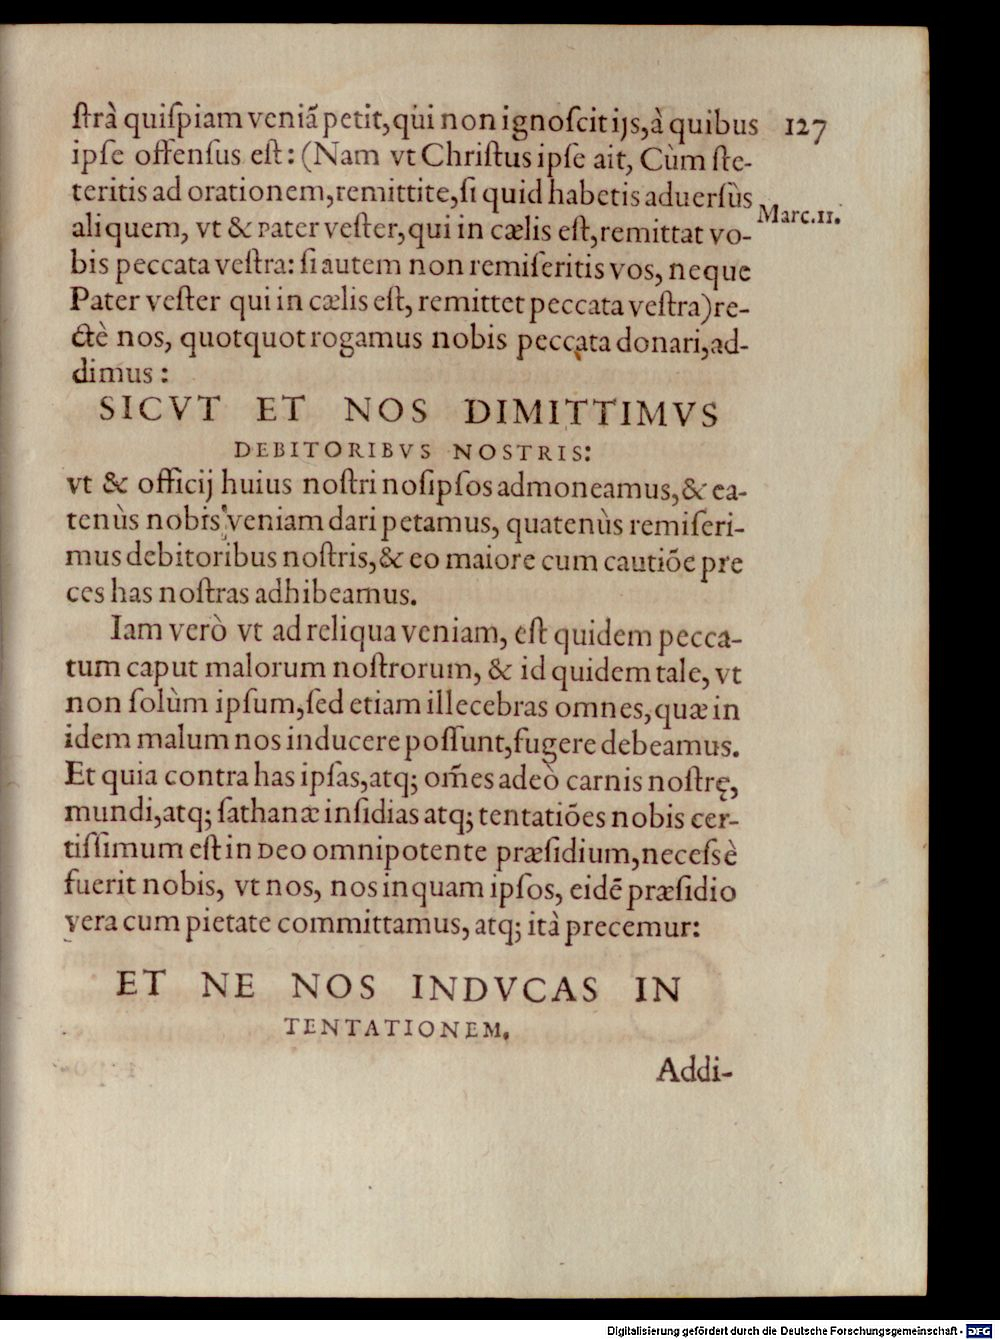 ſtrà quiſpiam veniã petit, qui non ignoſcit ijs, à quibus 127
ipſe offenſus eſt: (Nam vt Chriſtus ipſe ait, Cùm ſte-
teritis ad orationem, remittite, ſi quid habetis aduerſùs
Marc.11.
aliquem, vt & Pater veſter, qui in cælis eſt, remittat vo-
bis peccata veſtra: ſi autem non remiſeritis vos, neque
Pater veſter qui in cælis eſt, remittet peccata veſtra) re-
ctè nos, quotquot rogamus nobis peccata donari, ad-
dimus:
SICVT ET NOS DIMITTIMVS
DEBITORIBVS NOSTRIS:
vt & officij huius noſtri noſipſos admoneamus, & ea-
tenùs nobis veniam dari petamus, quatenùs remiſeri-
mus debitoribus noſtris, & eo maiore cum cautiõe pre
ces has noſtras adhibeamus.
Iam verò vt ad reliqua veniam, eſt quidem pecca-
tum caput malorum noſtrorum, & id quidem tale, vt
non ſolùm ipſum, ſed etiam illecebras omnes, quæ in
idem malum nos inducere poſſunt, fugere debeamus.
Et quia contra has ipſas, atq; om̃es adeò carnis noſtrę,
mundi, atq; ſathanæ inſidias atq; tentatiões nobis cer-
tiſſimum eſt in Deo omnipotente præſidium, neceſsè
fuerit nobis, vt nos, nos inquam ipſos, eidẽ præſidio
vera cum pietate committamus, atq; ità precemur:
ET NE NOS INDVCAS IN
TENTATIONEM.
Addi-
Digitalisierung gefördert durch die Deutsche Forschungsgemeinschaft - DFG